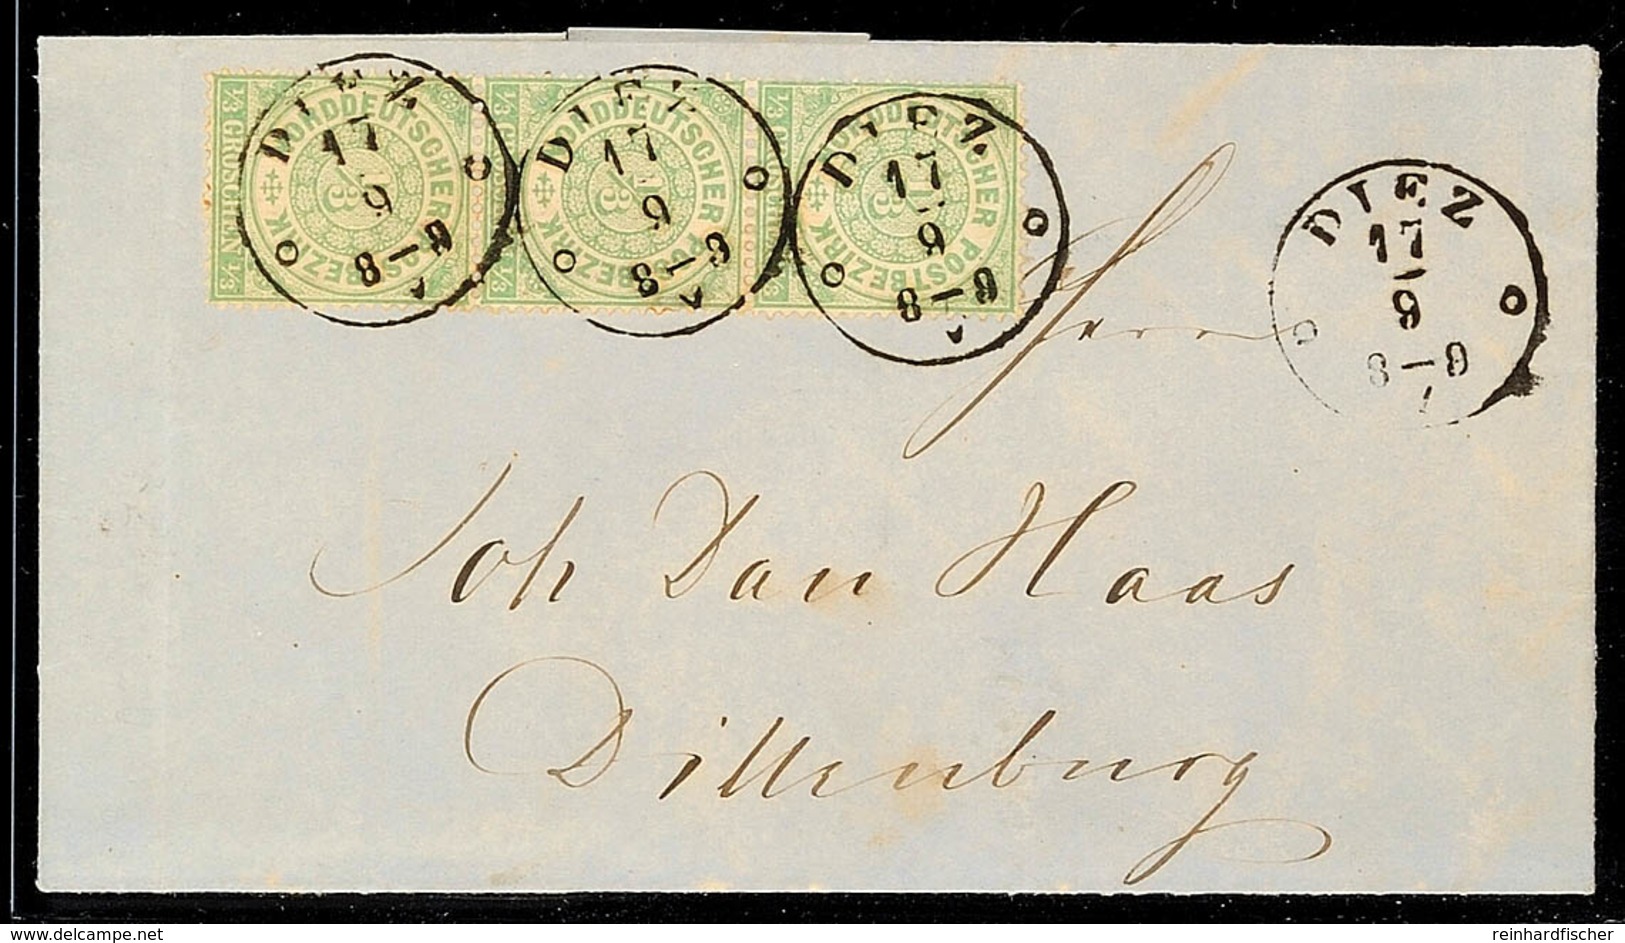 DIEZ
17
9
8–9
DIEZ
17
9
8–9
DIEZ
17
9
8–9
DIEZ
17
9
8–9
NORDDEUTSCHER POSTBEZIRK
1/3 GROSCHEN 1/3
NORDDEUTSCHER POSTBEZIRK
NORDDEUTSCHER POSTBEZIRK
Herrn
Joh Dan Haas
Dillenburg
www.delcampe.net
reinhardfischer